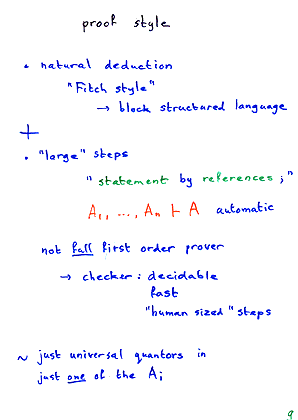 proof style
• natural deduction
"Fitch style"
→ block structured language
+
• "large" steps
"statement by references ;"
A₁, ..., Aₙ ⊢ A automatic
not full first order prover
→ checker : decidable
fast
"human sized" steps
~ just universal quantors in
just one of the Aᵢ
9